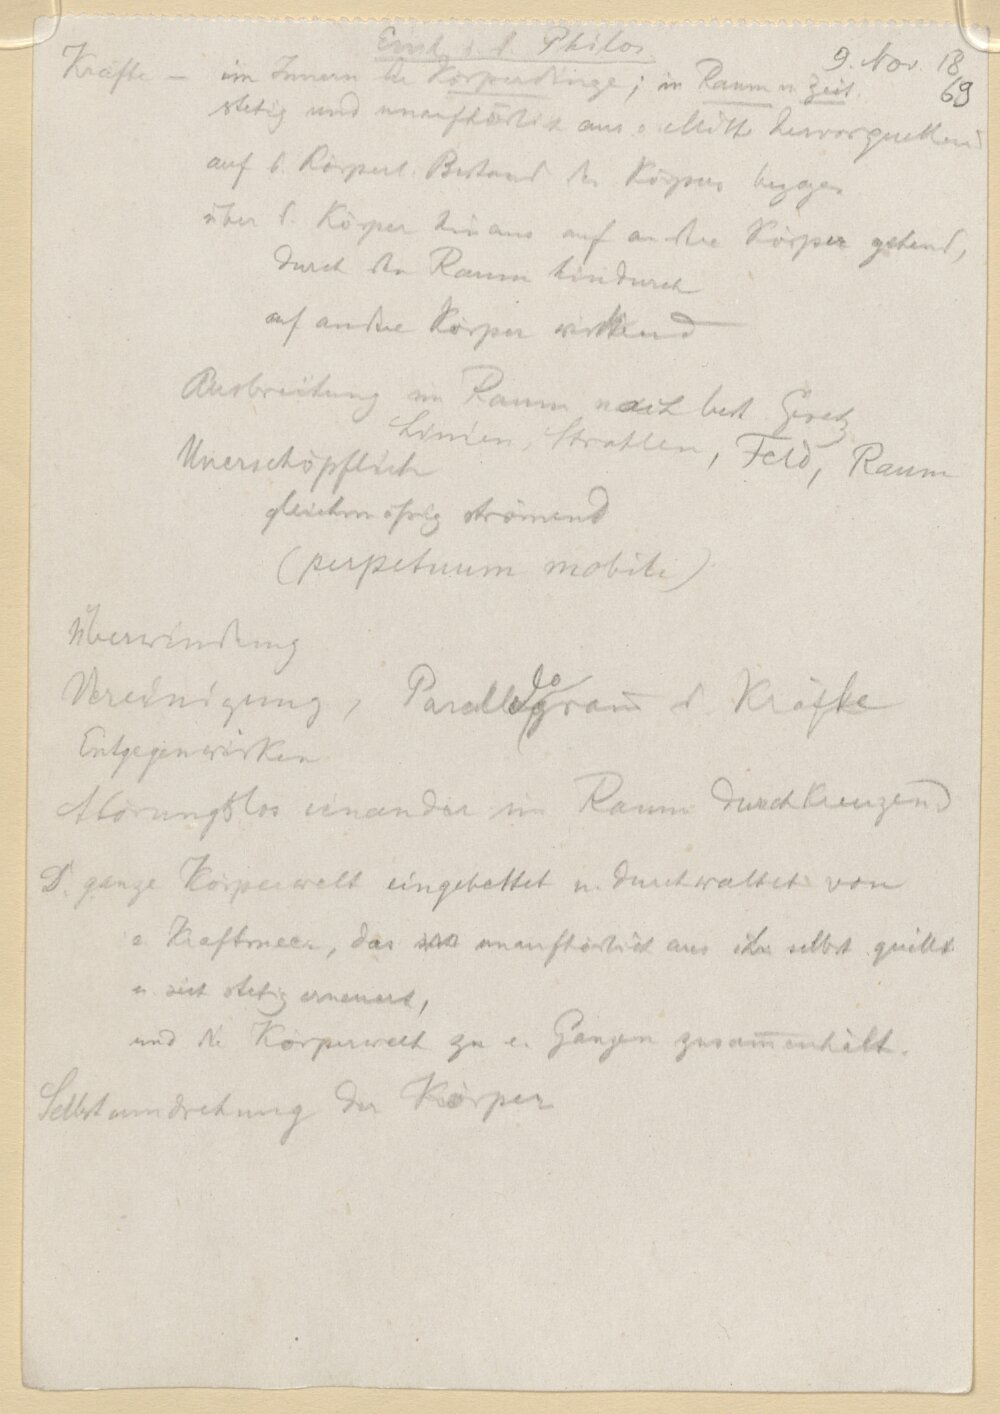 Einl. i. d. Philos.
9. Nov. 18
69
Kräfte — im Innern der Körperdinge; in Raum u. Zeit.
stetig und unaufhörlich aus e. Mitte hervorquellend
auf d. Körperl. Bestand des Körpers bezogen
über d. Körper hinaus auf andre Körper gehend,
durch den Raum hindurch
auf andre Körper wirkend
Ausbreitung im Raum nach best. Gesetz
Linien, Strahlen, Feld, Raum
Unerschöpflich
gleichmäßig strömend
(perpetuum mobile)
Überwindung
Vereinigung, Parallelogram̅ d. Kräfte
Entgegenwirken
Störungslos einander im Raum durchkreuzend
D. ganze Körperwelt eingebettet u. durchwaltet von
e. Kraftmeer, das unaufhörlich aus selbst quillt
u. sich stetig erneuert,
und die Körperwelt zu e. Ganzen zusam̅enhält.
Selbstumdrehung der Körper